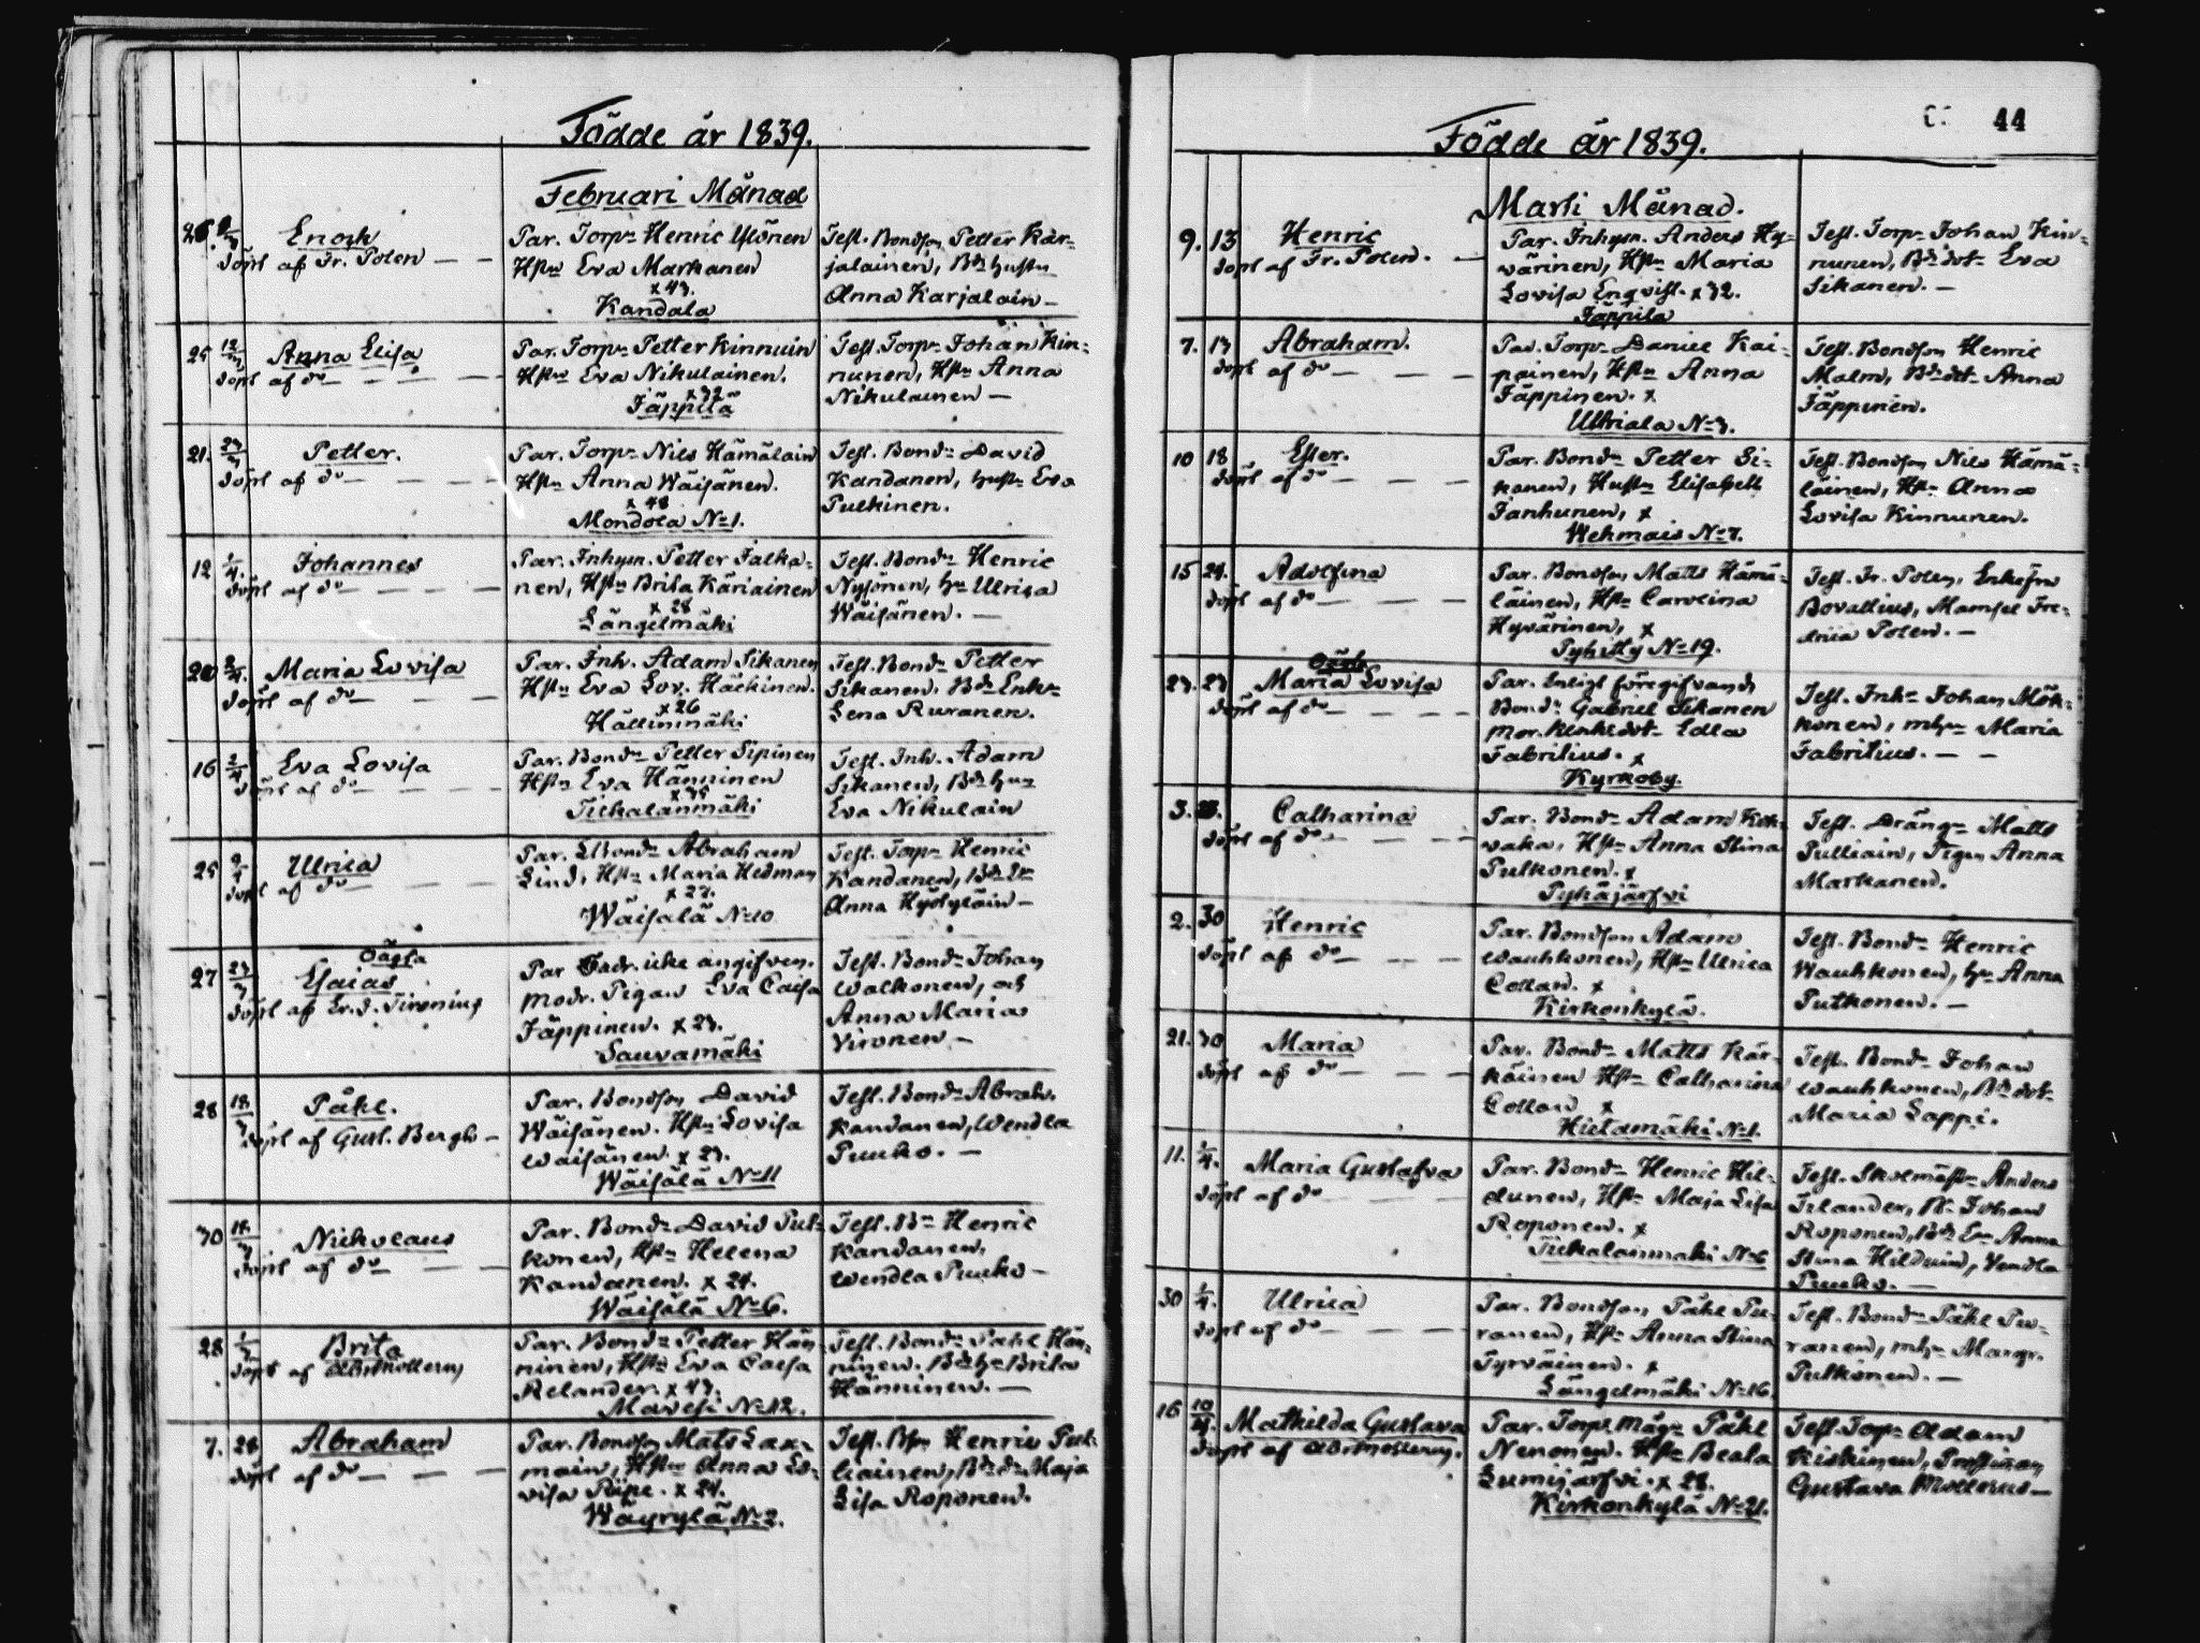 Födde år 1839.
Februari Månad
26. Enoch
döpt af Fr. Polen — —
Par. Torpn Henric Ylönen
Hstru Eva Markanen
x 43.
Kandala
Test. Bondson Petter Kar-
jalainen, Bdhustru
Anna Karjalain —
25 12/3 Anna Elisa
döpt af do — — —
Par. Torpn Petter Kinnuin
Hstru Eva Nikulainen.
x 32
Jäppilä
Test. Torpn Johan Kin-
nunen, Hstn Anna
Nikulainen —
21. 23/3 Petter.
döpt af do — — —
Par. Torpn Nils Hämäläin
Hstn Anna Wäisänen.
x 48
Mondola No 1.
Test. Bondn David
Kandanen, hustn Eva
Pulkinen.
12 1/4. Johannes
döpt af do — — —
Par. Inhysn. Petter Jalka-
nen, Hstn Brita Käriainen
x 28
Längelmäki
Test. Bondn Henric
Nysönen, hu Ulrica
Wäisänen. —
20 2/4. Maria Lovisa
döpt af do — —
Par. Inh. Adam Sikanen
Hstn Eva Lov. Häckinen.
x 26
Hällinmäki
Test. Bondn Petter
Sikanen, Bd Enkn
Lena Ruranen.
16 2/4 Eva Lovisa
döpt af do — — —
Par. Bondn Petter Sipinen
Hstn Eva Hänninen
x 35
Tickalanmäki
Test. Inh. Adam
Sikanen, Bdhun
Eva Nikulain
25 Ulrica
döpt af do — — —
Par. Bondn Abraham
Lind, Hstn Maria Hedman
x 27.
Wäisalä No 10
Test. Torpn Henric
Kandanen, Bd dr
Anna Hyötyläin —
27 23/3 Oägta
Esaias
döpt af Er. J. Tironius
Par Fadr. icke angifven.
Modr. Pigan Eva Caisa
Jäppinen. x 23.
Sauvamäki
Test. Bondn Johan
Walkonen, och
Anna Maria
Vironen —
28 18/3 Påhl.
döpt af Gust. Bergh —
Par. Bondson David
Wäisänen. Hstn Lovisa
Waisänen x 23.
Wäisälä No 11
Test. Bondn Abrah.
Kandanen, Wendla
Puuko. —
30 18/3 Nickolaus
döpt af do — —
Par. Bondn David Put-
konen, Hstn Helena
Kandanen. x 24.
Wäisälä No 6.
Test. Bn Henric
Kandanen,
Wendla Puuko —
28 1/3 Brita
döpt af Ab. Mollerus
Par. Bondn Petter Hän-
ninen, Hstn Eva Caisa
Relander. x 43.
Mavesi No 12.
Test. Bondn Påhl Hän-
ninen. Bdhu Brita
Hänninen. —
7. 28 Abraham
döpt af do — — —
Par. Bondson Mats Lax-
main, Hstn Anna Lo-
visa Pöpe. x 24.
Wäyrylä No 2.
Test. Bsn Henric Pul-
liainen, Bd dr Maja
Lisa Roponen.
44
Födde år 1839.
Marti Månad.
9. 13 Henric
döpt af Fr. Polen. —
Par. Inhysn. Anders Hy-
värinen, Hstn Maria
Lovisa Enqvist. x 32.
Jäppilä
Test. Torpn Johan Kin-
nunen, Bd dotr Eva
Sikanen. —
7. 13 Abraham.
döpt af do — — —
Par. Torpn Daniel Kai-
painen, Hstn Anna
Jäppinen. x
Ullriala No 3.
Test. Bondson Henric
Malm, Bd dotr Anna
Jäppinen.
10 18 Ester.
döpt af do — — —
Par. Bondn Petter Si-
kanen, Hustn Elisabeth
Janhunen, x
Wehmais No 7.
Test. Bondson Nils Hämä-
läinen, Hstn Anna
Lovisa Kinnunen.
15 24. Adolfina
döpt af do — — —
Par. Bondson Matts Hämä-
läinen, Hstn Carolina
Hyvärinen, x
Pyhitty No 19.
Test. Fr. Polen, Enkefru
Bovallius, Mamsel Fre-
drica Polen. —
23. 23 Oägta
Maria Lovisa
döpt af do — — —
Par. Enligt föregifvande
Bondn Gabriel Sikanen
Mor. Klockdotr Edla
Fabritius. x
Kyrkoby.
Test. Inhn Johan Mök-
könen, mhu Maria
Fabritius. — —
3. Catharina
döpt af do — — —
Par. Bondn Adam
vaka, Hstn Anna Stina
Putkonen. x
Pyhäjärfvi
Test. Drängn Matts
Pulliain, Pigan Anna
Markanen.
2. 30 Henric
döpt af do — — —
Par. Bondson Adam
Wauhkonen, Hstn Ulrica
Collan. x
Kirkonkylä.
Test. Bondn Henric
Wauhkonen, hu Anna
Putkonen. —
21. 30 Maria
döpt af do — — —
Par. Bondn Matts Kär-
käinen Hstn Catharina
Collan x
Hietamäki No 1.
Test. Bondn Johan
Wauhkonen, Bd dotr
Maria Lappi.
11. 1/4. Maria Gustafva
döpt af do —
Par. Bondn Henric Hil-
dunen, Hstn Maja Lisa
Roponen. x
Tickalanmäki No 6
Test. Skolmästn Anders
Irlander, Bn Johan
Roponen, Bd En Anna
Stina Hilduin, Vendla
Puuko. —
30 1/4. Ulrica
döpt af do — — —
Par. Bondson Påhl Pu-
ranen, Hstn Anna Stina
Tyrväinen. x
Längelmäki No 16
Test. Bondn Påhl Pu-
ranen, mhu Margr.
Putkonen. —
16 10/4. Mathilda Gustava
döpt af Ab. Mollerus.
Par. Torp. Mågn Påhl
Nenonen. Hstn Beata
Lumijärfvi. x 28.
Kirkonkylä No 21.
Test. Torpn Adam
Kiskinen, Prostinnan
Gustava Mollerus —